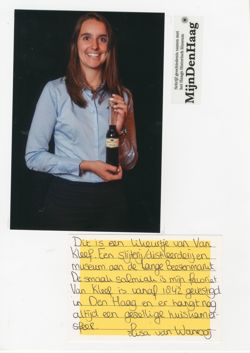 Schrijf geschiedenis samen met
het Haags Historisch Museum
MijnDenHaag
Dit is een likeurtje van Van
Kleef. Een slijterij/distilleerderij en
museum aan de Lange Beestenmarkt.
De smaak salmiak is mijn favoriet
Van Kleef is vanaf 1842 gevestigd
in Den Haag en er hangt nog
altijd een gezellige huiskamer
sfeer.
Lisa van